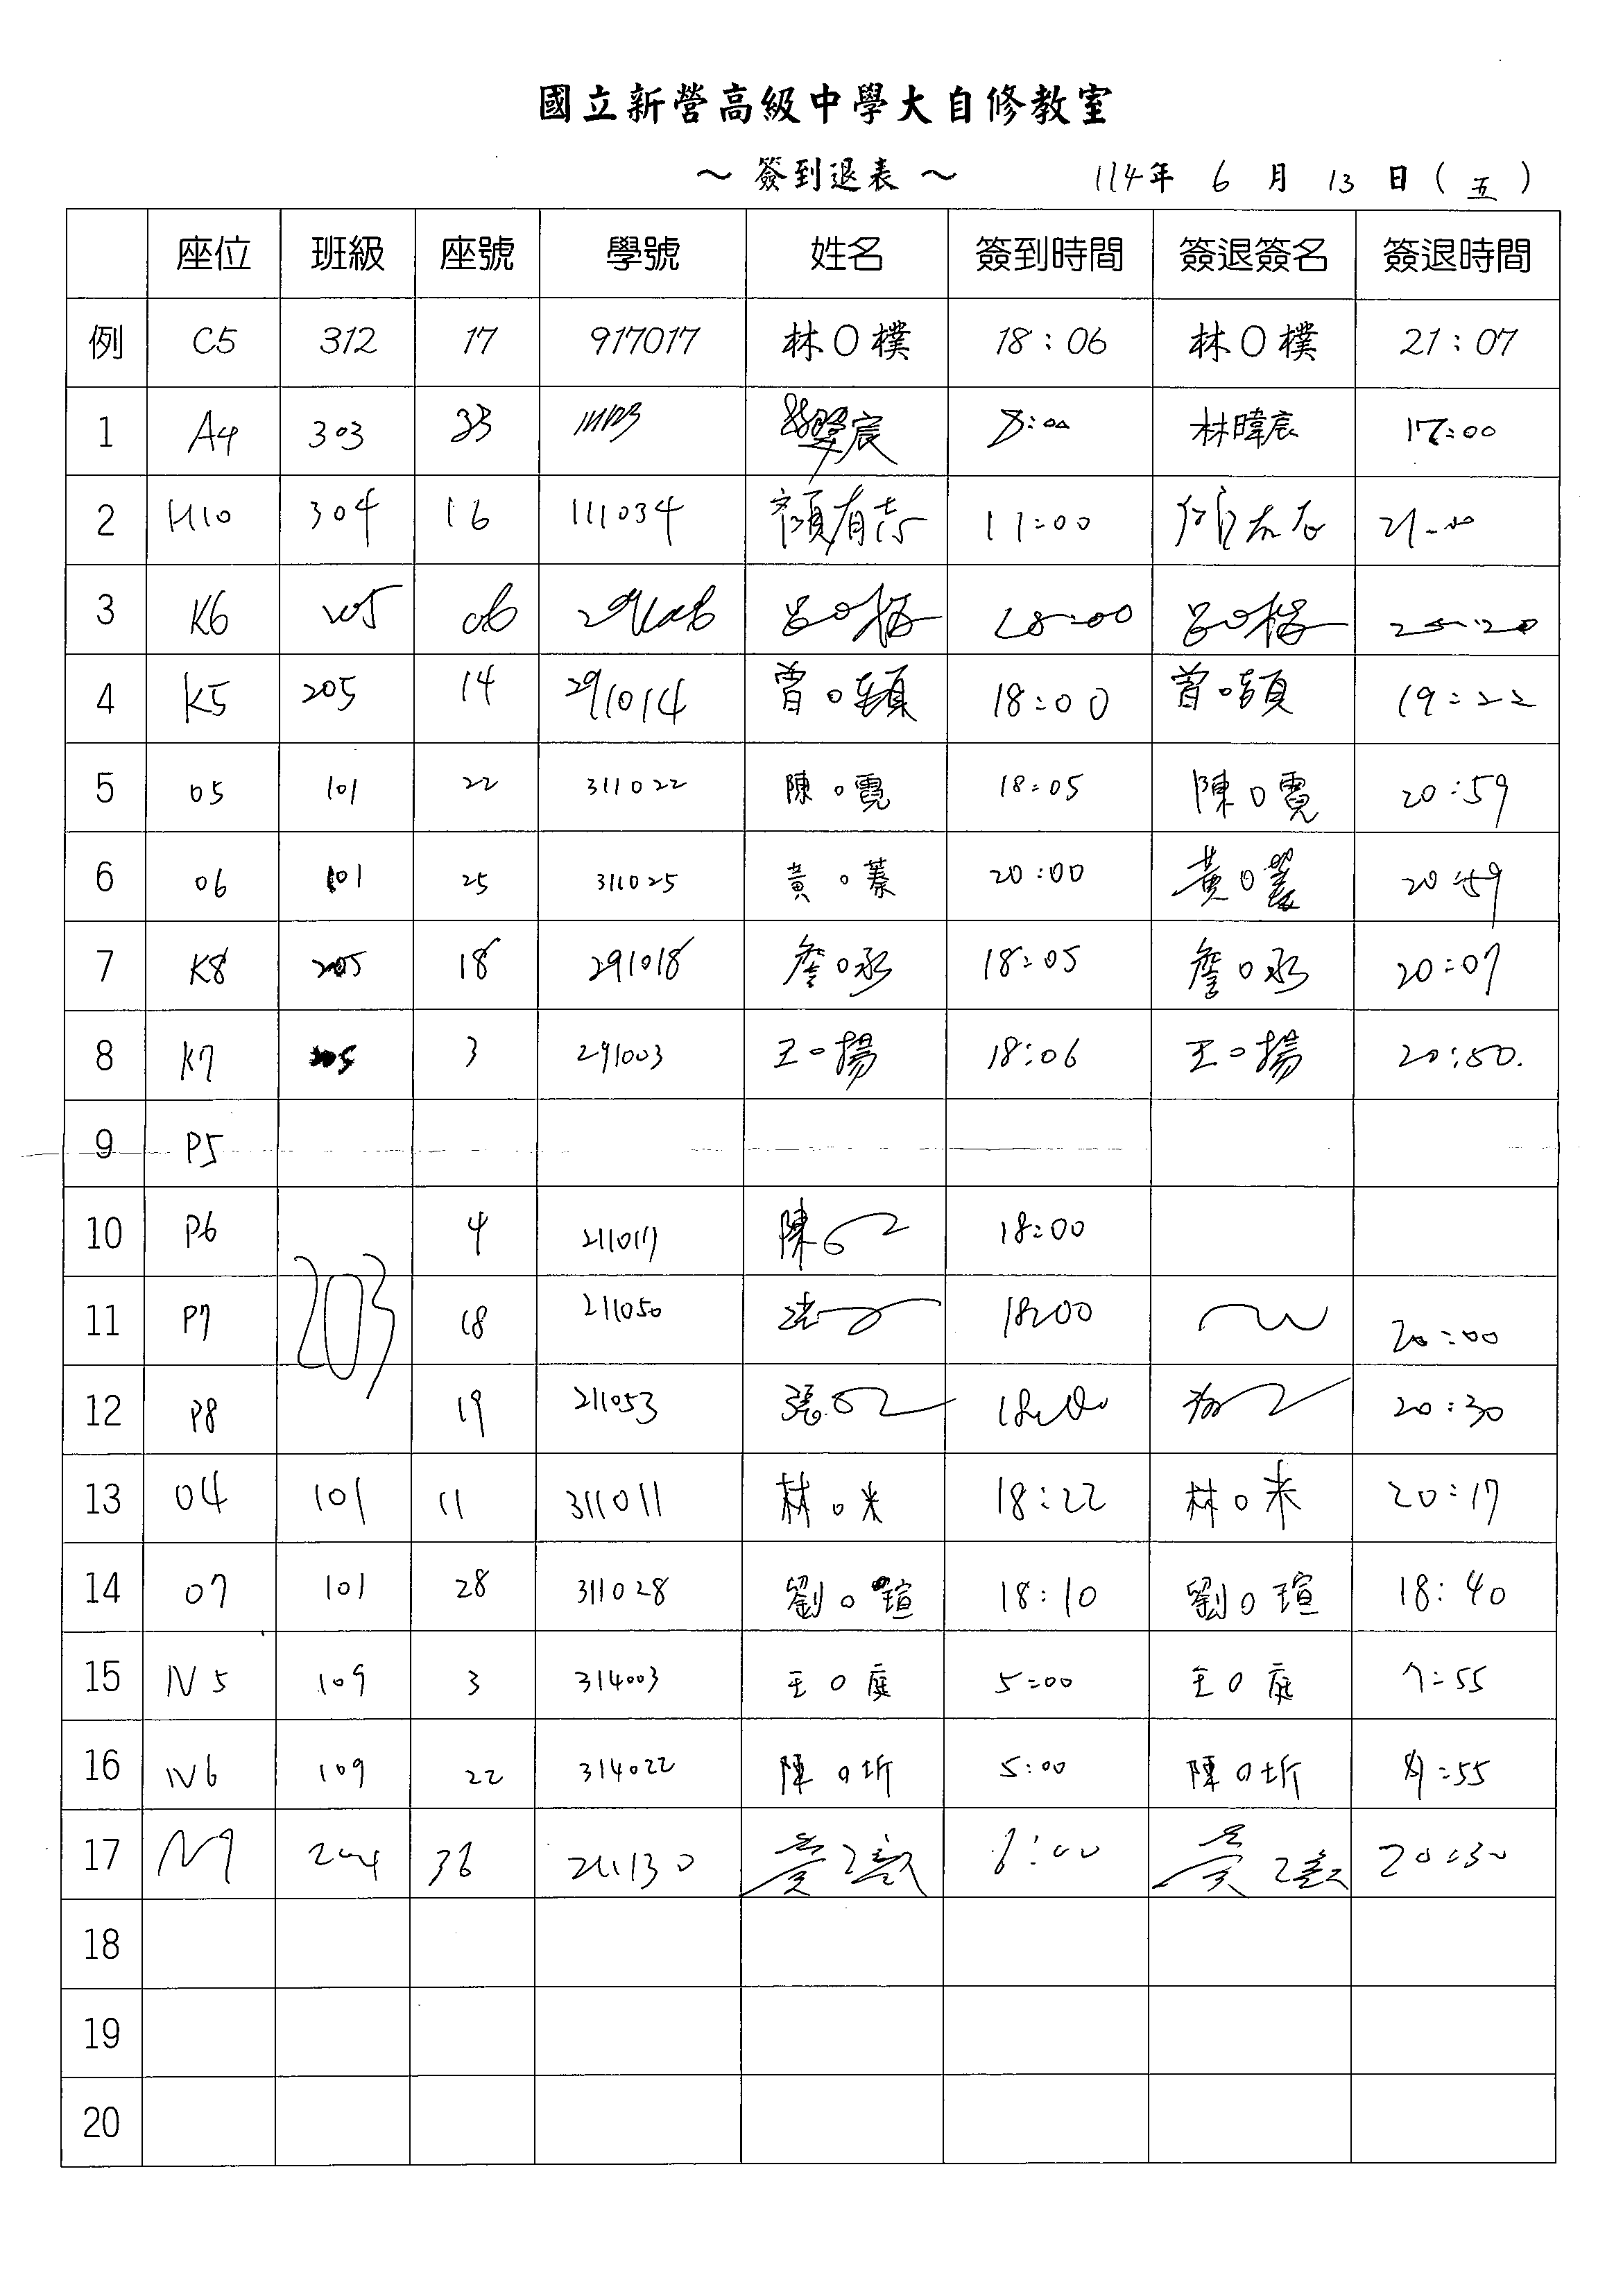 國立新營高級中學大自修教室
～ 簽到退表 ～ 114年 6 月 13 日 ( 五 )
座位 班級 座號 學號 姓名 簽到時間 簽退簽名 簽退時間
例 C5 312 17 917017 林O樸 18:06 林O樸 21:07
1 A4 303 33 宸 8:00 林暐宸 17:00
2 H10 304 16 111034 顏有志 11:00
3 K6 205 06 呂O 18:00 呂O
4 K5 205 14 291014 曾O頴 18:00 曾O頴 19:22
5 05 101 22 311022 陳O霓 18:05 陳O霓 20:59
6 06 101 25 311025 黃O蓁 20:00 黃O蓁 20:59
7 K8 205 18 291018 詹O承 18:05 詹O承 20:07
8 K7 205 3 291003 王O揚 18:06 王O揚 20:50.
9 P5
10 P6 4 211017 陳 18:00
11 P7 203 18 211050 18:00 20:00
12 P8 19 211053 張 20:30
13 04 101 11 311011 林O米 18:22 林O米 20:17
14 07 101 28 311028 劉O瑄 18:10 劉O瑄 18:40
15 N5 109 3 314003 王O庭 5:00 王O庭 7:55
16 N6 109 22 314022 陳O圻 5:00 陳O圻 :55
17 204 36 211130 黃 6:00 黃 20:30
18
19
20